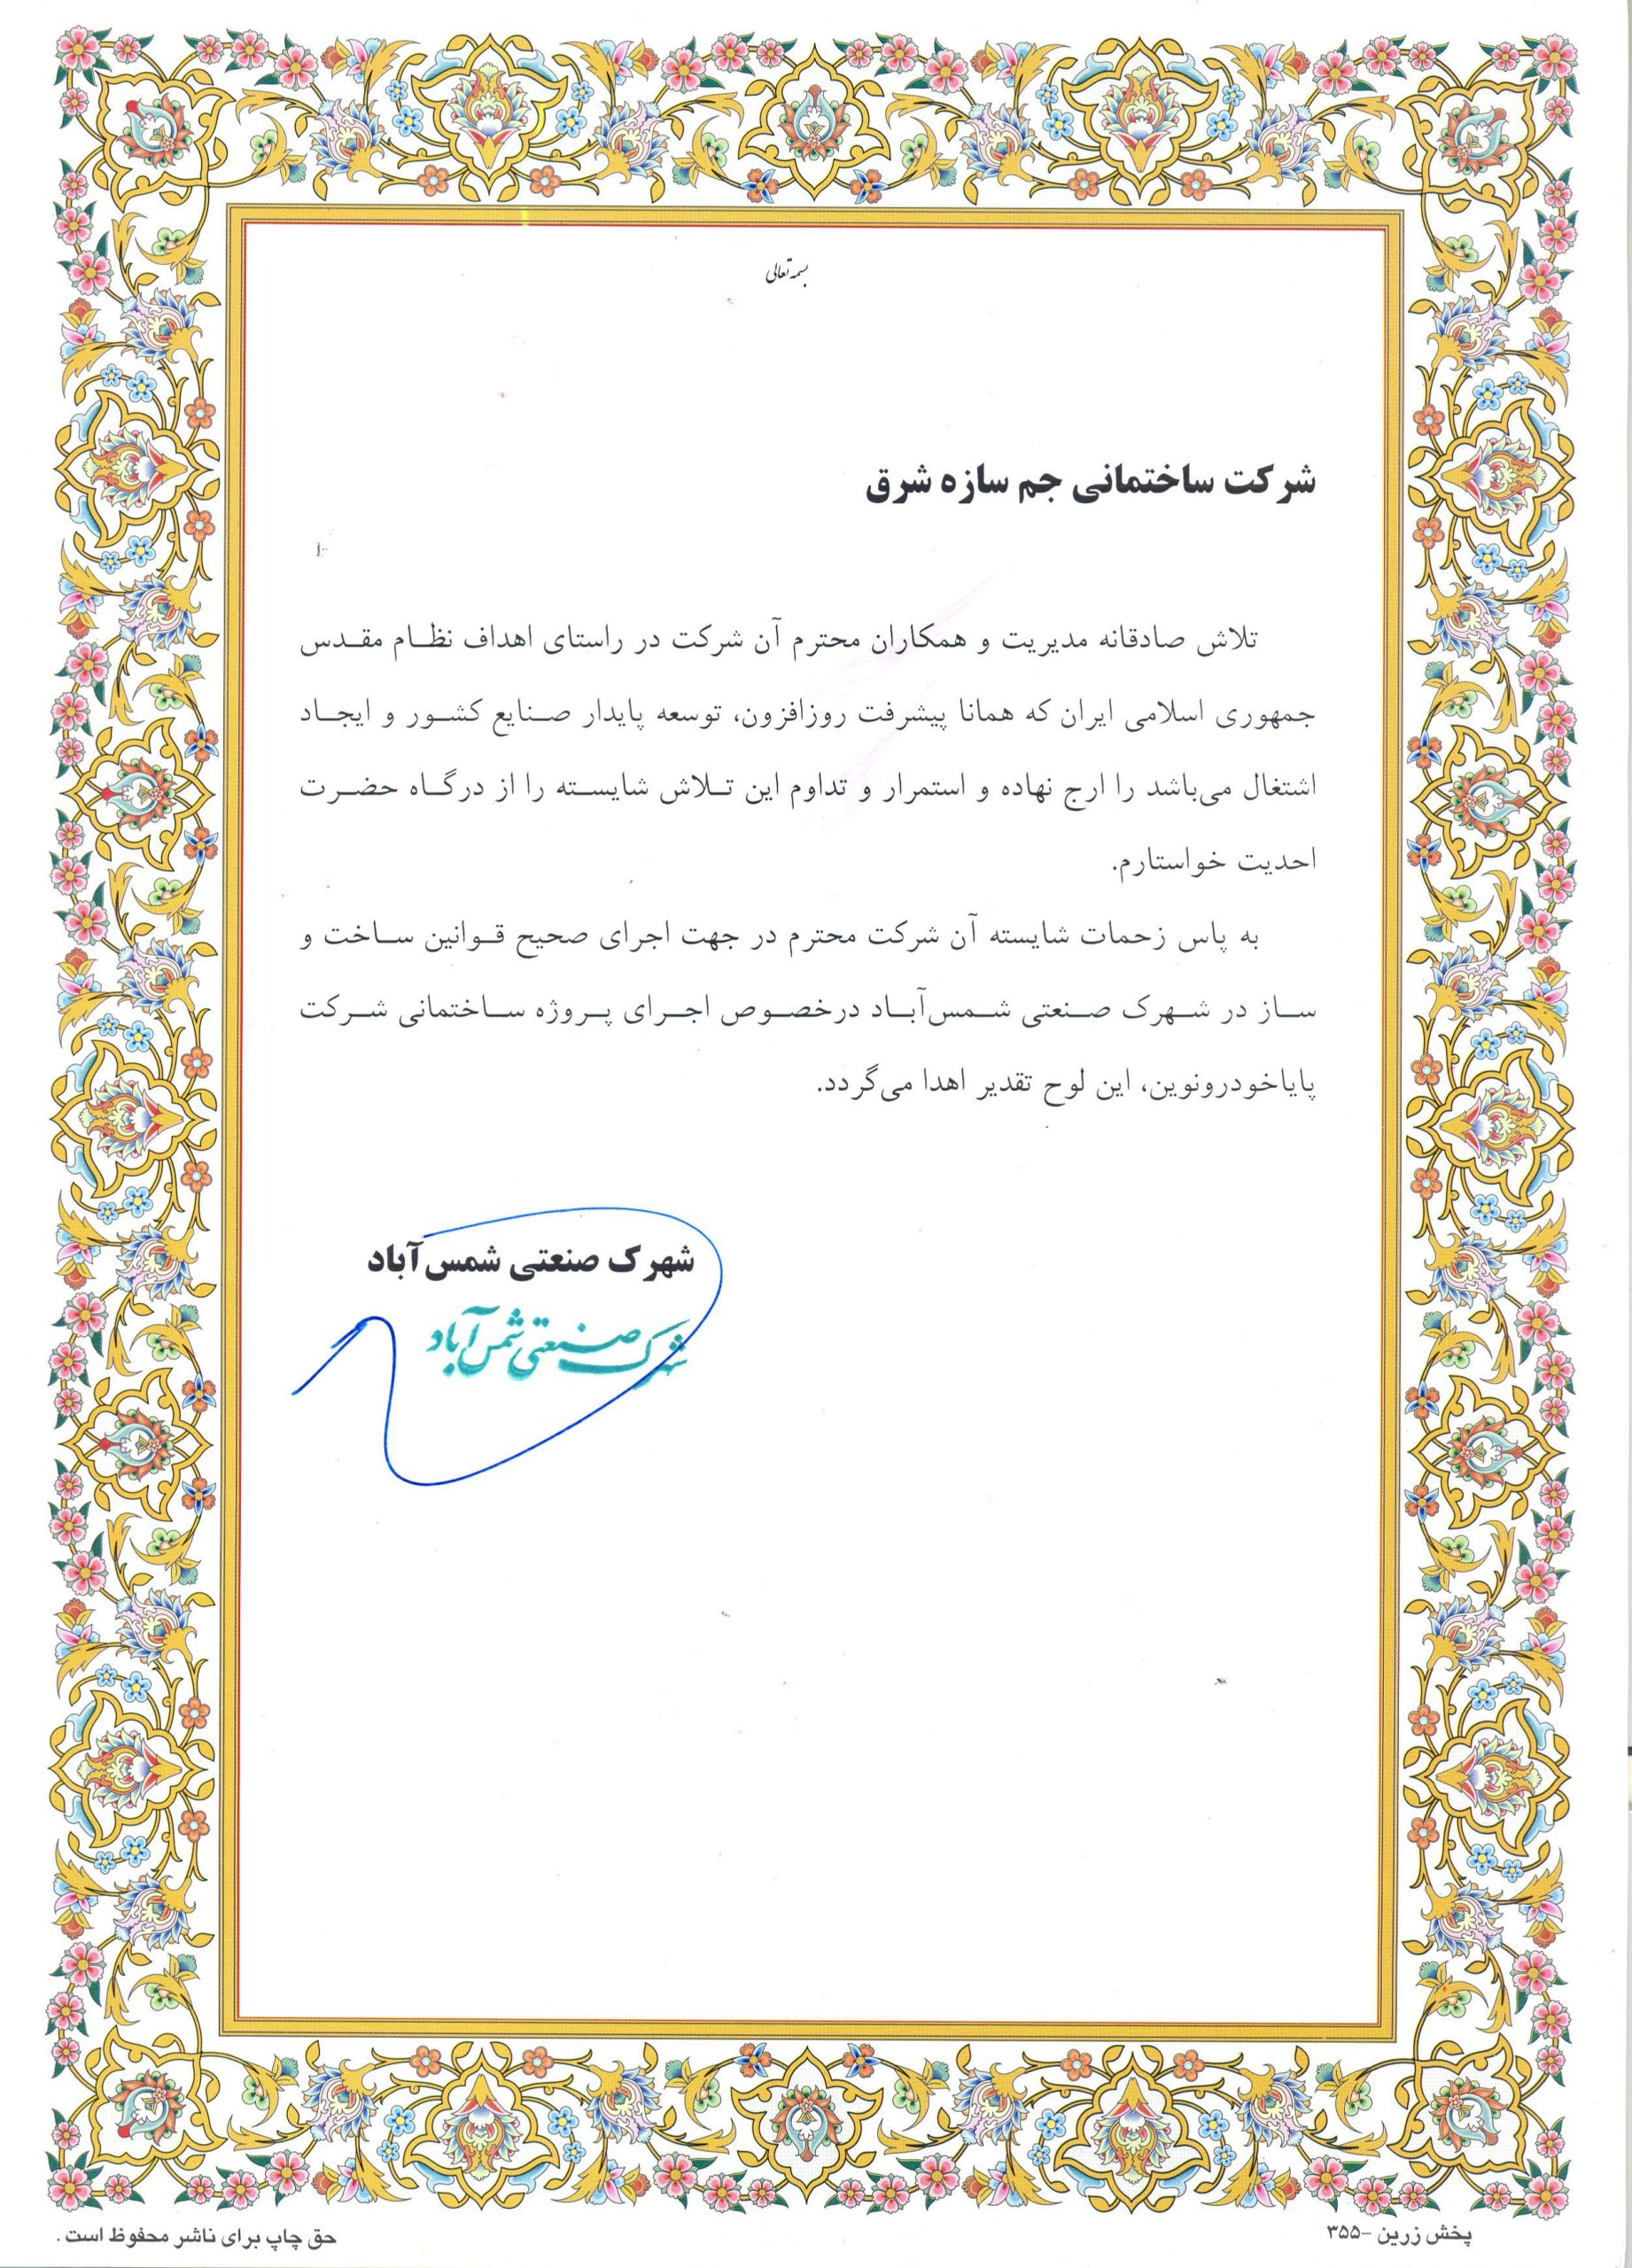 بسمه تعالی
شرکت ساختمانی جم سازه شرق
تلاش صادقانه مدیریت و همکاران محترم آن شرکت در راستای اهداف نظام مقدس
جمهوری اسلامی ایران که همانا پیشرفت روزافزون، توسعه پایدار صنایع کشور و ایجاد
اشتغال می‌باشد را ارج نهاده و استمرار و تداوم این تلاش شایسته را از درگاه حضرت
احدیت خواستارم.
به پاس زحمات شایسته آن شرکت محترم در جهت اجرای صحیح قوانین ساخت و
ساز در شهرک صنعتی شمس‌آباد درخصوص اجرای پروژه ساختمانی شرکت
پایاخودرونوین، این لوح تقدیر اهدا می‌گردد.
شهرک صنعتی شمس‌آباد
شهرک صنعتی شمس‌آباد
پخش زرین -۳۵۵
حق چاپ برای ناشر محفوظ است .